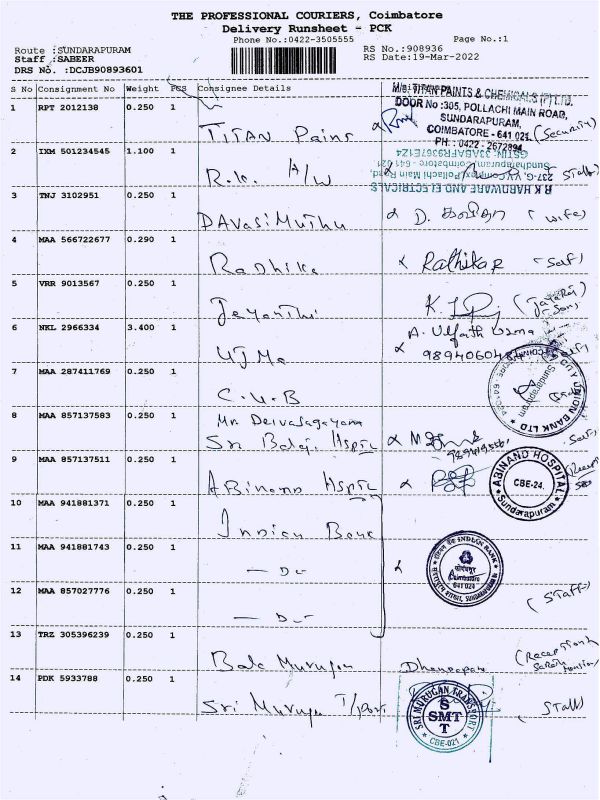 THE PROFESSIONAL COURIERS, Coimbatore
Delivery Runsheet - PCK
Phone No.:0422-3505555
Page No.:1
Route :SUNDARAPURAM
Staff :SABEER
DRS No. :DCJB90893601
RS No.:908936
RS Date:19-Mar-2022
S No Consignment No Weight PCS Consignee Details
M/s. TITAN PAINTS & CHEMICALS (P) LTD.
DOOR No :305, POLLACHI MAIN ROAD,
SUNDARAPURAM,
COIMBATORE - 641 021.
PH : 0422 - 2672894
1 RPT 2012138 0.250 1 TITAN Pains (Security)
2 IXM 501234545 1.100 1 R.K. H/W Staff
R K HARDWARE AND ELECTRICALS
237-G, VAC Complex, Pollachi Main Road,
Sundarapuram, Coimbatore - 641 021
GSTIN: 33ABAFR9367E1Z4
3 TNJ 3102951 0.250 1 DAvasiMuthu D. கவிதா (wife)
4 MAA 566722677 0.290 1 Radhika Rathikar Self)
5 VRR 9013567 0.250 1 Jeyanthi
6 NKL 2966334 3.400 1 UJMa A. Ulfath Usma
7 MAA 287411769 0.250 1 C.U.B
CITY UNION BANK LTD
Sundarapuram
8 MAA 857137583 0.250 1 Mr. Deivasagayam
Sri Balaji HSPTL
9 MAA 857137511 0.250 1 ABinand HSPTL
ABINAND HOSPITAL
CBE-24.
Sundarapuram
10 MAA 941881371 0.250 1 Indian Bank
11 MAA 941881743 0.250 1 — Do
INDIAN BANK
कोयंबत्तूर
Coimbatore
641 024
12 MAA 857027776 0.250 1 — Do
(Staff)
13 TRZ 305396239 0.250 1 Bala Murugan (Reception
14 PDK 5933788 0.250 1 Sri Murugan T/port Staff)
SRI MURUGAN TRANSPORT
S
SMT
T
CBE-021